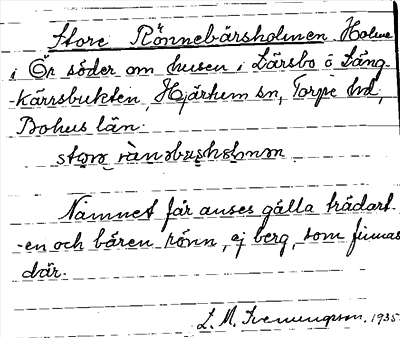 Store Rönnebärsholmen. Holme
i Ör söder om husen i Lärsbo ö Lång-
-kärrsbukten, Hjärtum sn, Torpe hd,
Bohus län.
Namnet får anses gälla trädart-
-en och bären rönn, ej berg, som finnas
där.
L. M. Svenungsson. 1935.